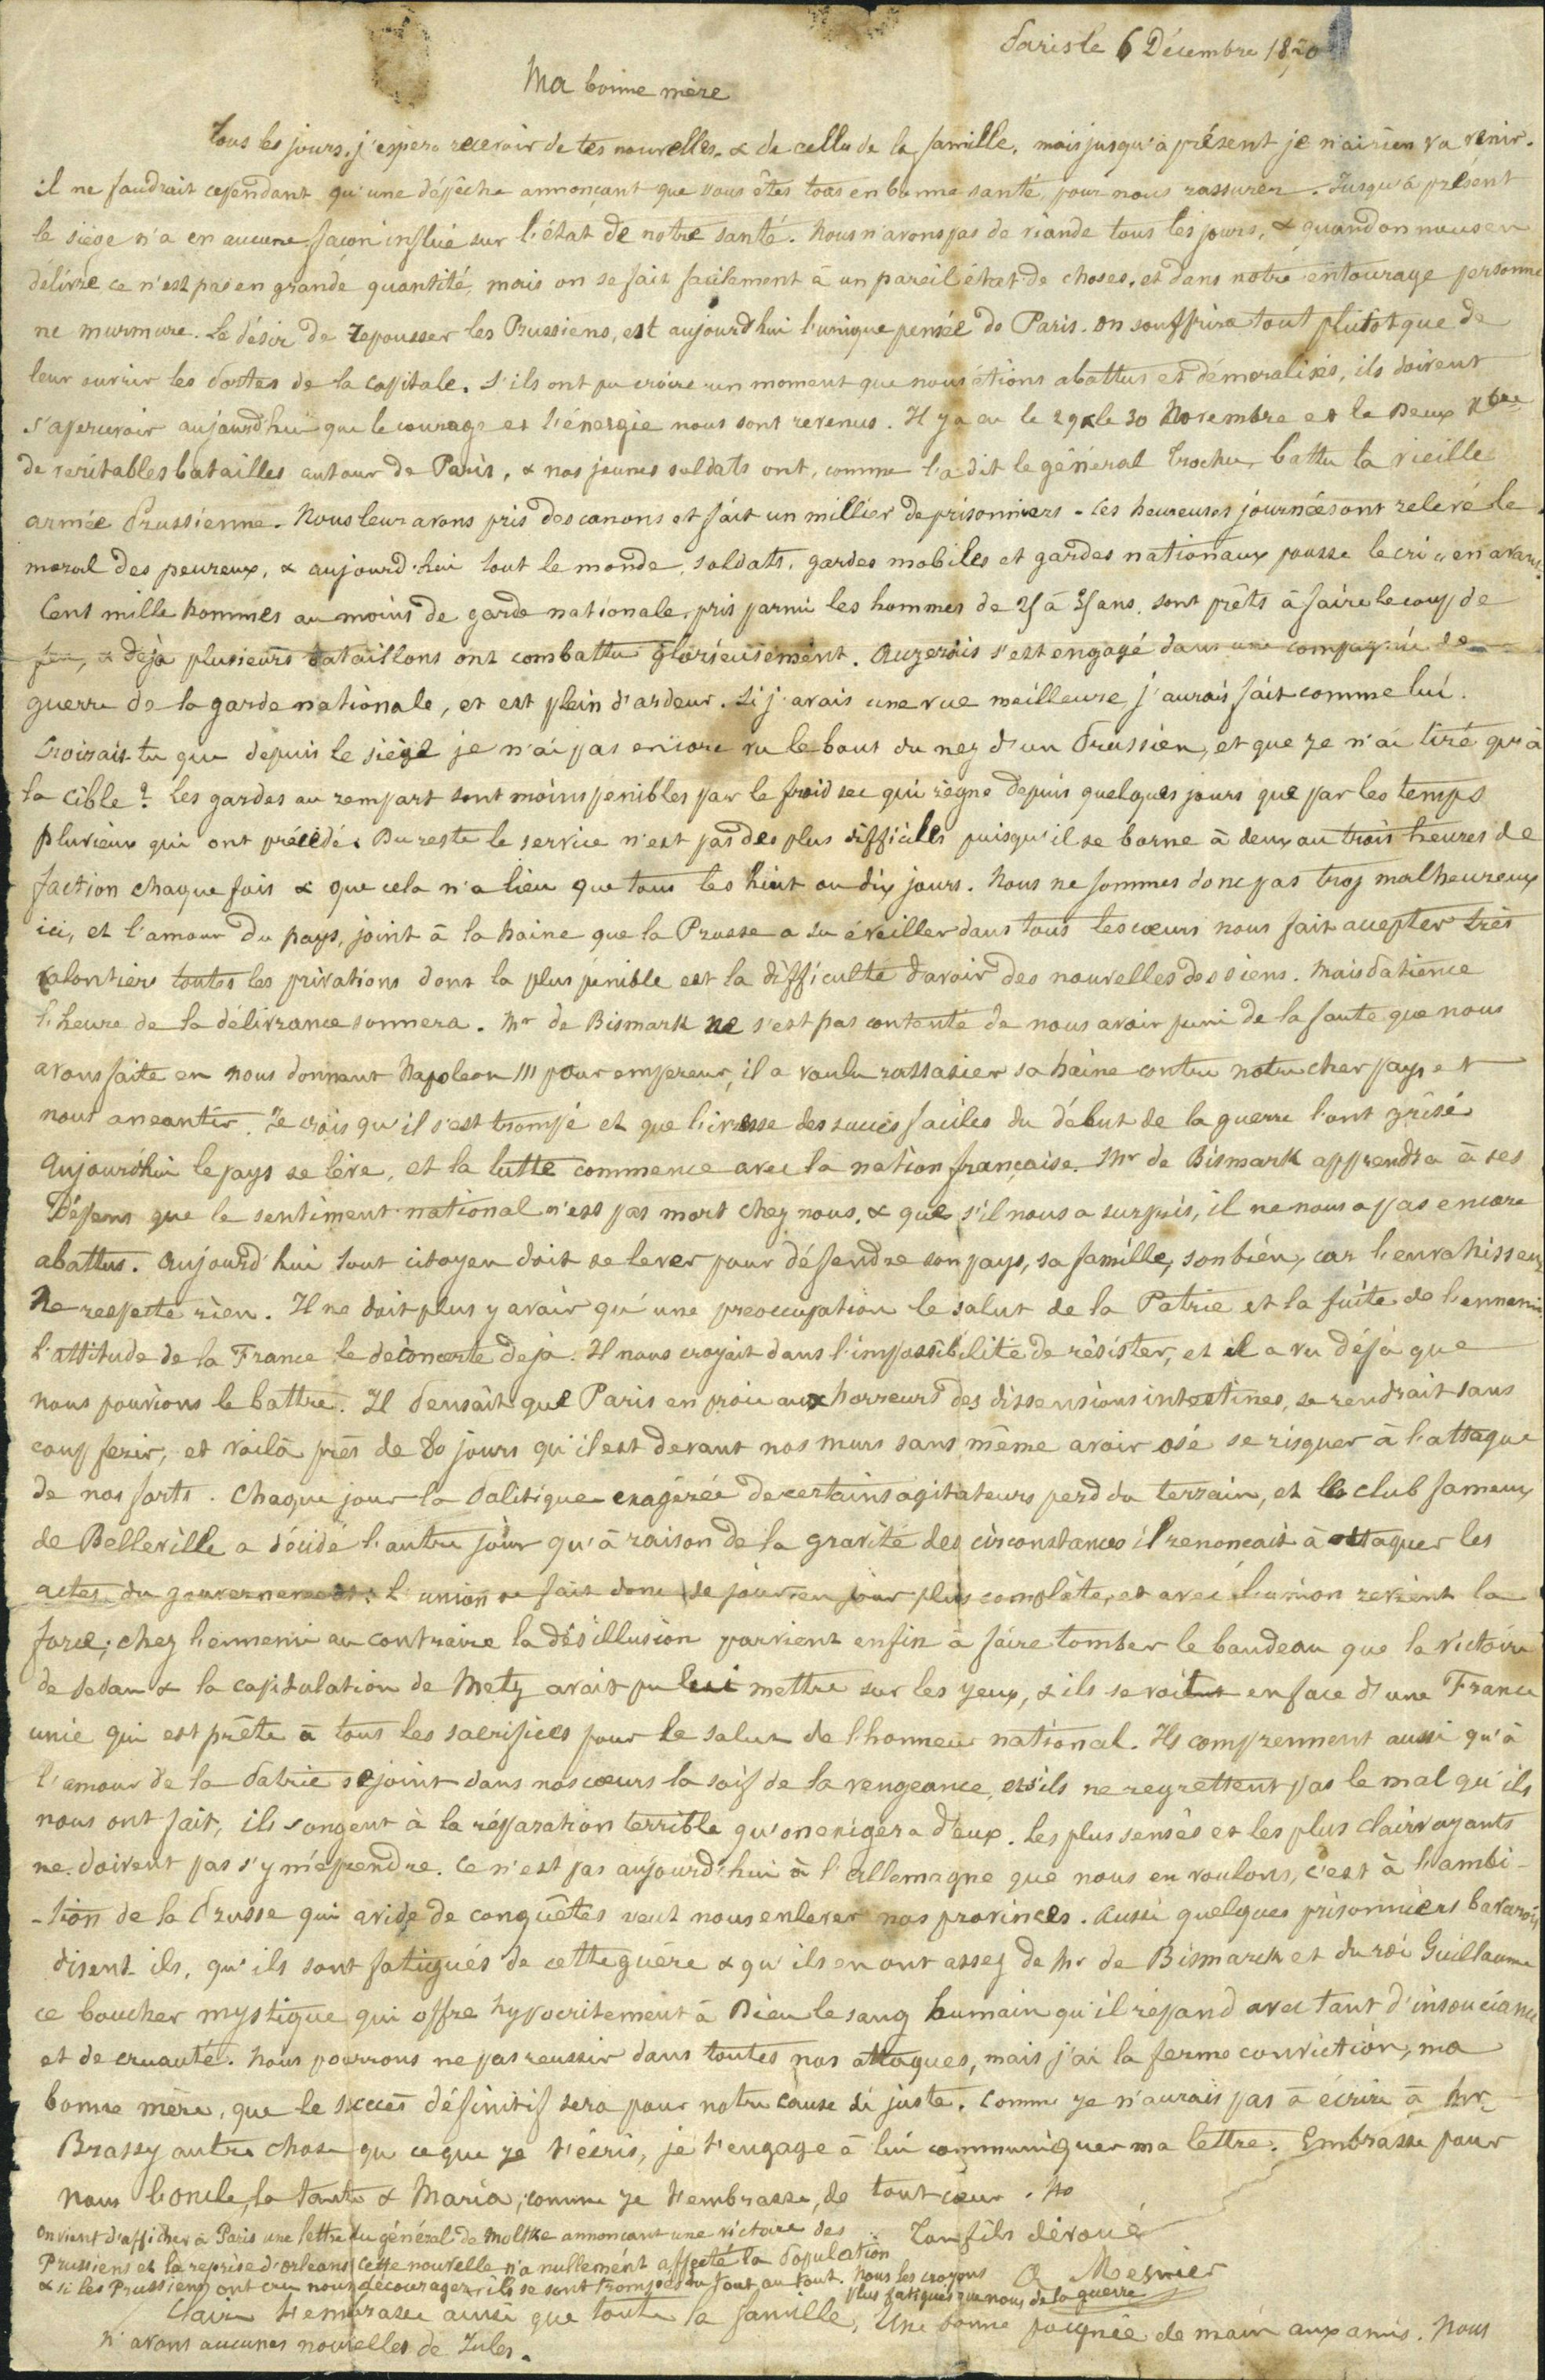 Paris le 6 Décembre 1870
Ma bonne mère
Tous les jours, j'espère recevoir de tes nouvelles, & de celles de la famille, mais jusqu'à présent je n'ai rien vu venir.
il ne faudrait cependant qu'une dépêche annonçant que vous êtes tous en bonne santé, pour nous rassurer. Jusqu'à présent
le siège n'a en aucune façon influé sur l'état de notre santé. Nous n'avons pas de viande tous les jours, & quand on nous en
délivre ce n'est pas en grande quantité, mais on se fait facilement à un pareil état de choses, et dans notre entourage personne
ne murmure. Le désir de repousser les Prussiens, est aujourd'hui l'unique pensée de Paris. on souffrira tout plutôt que de
leur ouvrir les Portes de la Capitale. S'ils ont pu croire un moment que nous étions abattus et démoralisés, ils doivent
s'apercevoir aujourd'hui que le courage et l'énergie nous sont revenus. Il y a eu le 29 & le 30 Novembre et le Deux Xbre
de véritables batailles autour de Paris, & nos jeunes soldats ont, comme l'a dit le général Trochu, battu la vieille
armée Prussienne. Nous leur avons pris des canons et fait un millier de prisonniers. Ces heureuses journées ont relevé le
moral des peureux, & aujourd'hui tout le monde, soldats, gardes mobiles et gardes nationaux pousse le cri "en avant.
Cent mille hommes au moins de garde nationale, pris parmi les hommes de 25 à 35 ans, sont prêts à faire le coup de
feu, & déjà plusieurs bataillons ont combattu glorieusement. Auzerais s'est engagé dans une compagnie de
guerre de la garde nationale, et est plein d'ardeur. Si j'avais une vue meilleure j'aurais fait comme lui.
Croirais-tu que depuis le siège je n'ai pas encore vu le bout du nez d'un Prussien, et que je n'ai tiré qu'à
la cible? Les gardes au rempart sont moins pénibles par le froid sec qui règne depuis quelques jours que par les temps
pluvieux qui ont précédé. Du reste le service n'est pas des plus difficiles puisqu'il se borne à deux ou trois heures de
faction chaque fois & que cela n'a lieu que tous les huit ou dix jours. Nous ne sommes donc pas trop malheureux
ici, et l'amour du pays, joint à la haine que la Prusse a su éveiller dans tous les cœurs nous fait accepter très
volontiers toutes les privations dont la plus pénible est la difficulté d'avoir des nouvelles des siens. Mais Patience
l'heure de la délivrance sonnera. Mr de Bismark ne s'est pas contenté de nous avoir puni de la faute que nous
avons faite en nous donnant Napoleon III pour empereur, il a voulu rassasier sa haine contre notre cher pays et
nous aneantir. Je crois qu'il s'est trompé et que l'ivresse des succès faciles du début de la guerre l'ont grisé
Aujourd'hui le pays se lève, et la lutte commence avec la nation française. Mr de Bismark apprendra à ses
Dépens que le sentiment national n'est pas mort chez nous, & que s'il nous a surpris, il ne nous a pas encore
abattus. Aujourd'hui tout citoyen doit se lever pour défendre son pays, sa famille, son bien, car l'envahisseur
Ne respecte rien. Il ne doit plus y avoir qu'une preoccupation le salut de la Patrie et la fuite de l'ennemi.
L'attitude de la France le déconcerte déjà. Il nous croyait dans l'impossibilité de résister, et il a vu déjà que
nous pouvions le battre. Il Pensait que Paris en proie aux horreurs des dissensions intestines, se rendrait sans
coup ferir, et voilà près de 80 jours qu'il est devant nos murs sans même avoir osé se risquer à l'attaque
de nos forts. Chaque jour la Politique exagérée de certains agitateurs perd du terrain, et le club fameux
de Belleville a décidé l'autre jour qu'à raison de la gravité des circonstances il renonçait à attaquer les
actes du gouvernement. L'union se fait donc de jour en jour plus complète, et avec l'union revient la
force; chez l'ennemi au contraire la désillusion parvient enfin à faire tomber le bandeau que la victoire
de Sedan & la capitulation de Metz avait pu lui mettre sur les yeux, & ils se voient en face d'une France
unie qui est prête à tous les sacrifices pour le salut de l'honneur national. Ils comprennent aussi qu'à
l'amour de la Patrie se joint dans nos cœurs la soif de la vengeance, et s'ils ne regrettent pas le mal qu'ils
nous ont fait, ils songent à la réparation terrible qu'on exigera d'eux. Les plus sensés et les plus clairvoyants
ne doivent pas s'y méprendre. Ce n'est pas aujourd'hui à l'allemagne que nous en voulons, c'est à l'ambi-
-tion de la Prusse qui avide de conquêtes veut nous enlever nos provinces. Aussi quelques prisonniers bavarois
disent-ils, qu'ils sont fatigués de cette guère & qu'ils en ont assez de Mr de Bismarck et du roi Guillaume
ce boucher mystique qui offre hypocritement à Dieu le sang humain qu'il répand avec tant d'insouciance
et de cruauté. Nous pourrons ne pas reussir dans toutes nos attaques, mais j'ai la ferme conviction, ma
bonne mère, que le succès définitif sera pour notre cause si juste. Comme je n'aurais pas à écrire à Mr
Brassy autre chose que ce que je t'écris, je t'engage à lui communiquer ma lettre. Embrasse pour
nous l'oncle, la tante & Maria, comme je t'embrasse, de tout cœur.
Ton fils dévoué
A Mesnier
on vient d'afficher à Paris une lettre du général de Moltke annonçant une victoire des
Prussiens et la reprise d'orleans cette nouvelle n'a nullement affecté la Population
& si les Prussiens ont cru nous décourager ils se sont trompés du tout au tout. Nous les croyons
plus fatigués que nous de la guerre
Claire t'embrasse ainsi que toute la famille, Une bonne poignée de main aux amis. Nous
n'avons aucunes nouvelles de Jules.